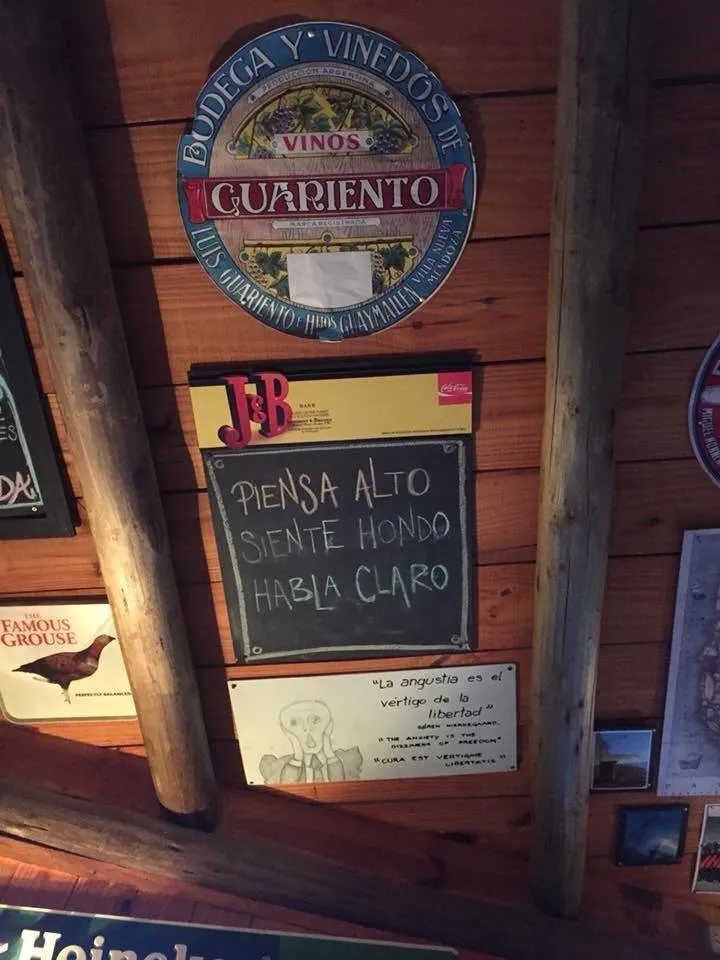 BODEGA Y VIÑEDOS DE
PRODUCCION ARGENTINA
VINOS
GUARIENTO
MARCA REGISTRADA
LUIS GUARIENTO E HIJOS GUAYMALLEN VILLA NUEVA
MENDOZA
J&B
RARE
Coca-Cola
PIENSA ALTO
SIENTE HONDO
HABLA CLARO
DA
THE
FAMOUS
GROUSE
PERFECTLY BALANCED
"La angustia es el
vértigo de la
libertad"
SÖREN KIERKEGAARD.
"THE ANXIETY IS THE
DIZZINESS OF FREEDOM"
"CURA EST VERTIGINE
LIBERTATIS"
MIGUEL
Heineken